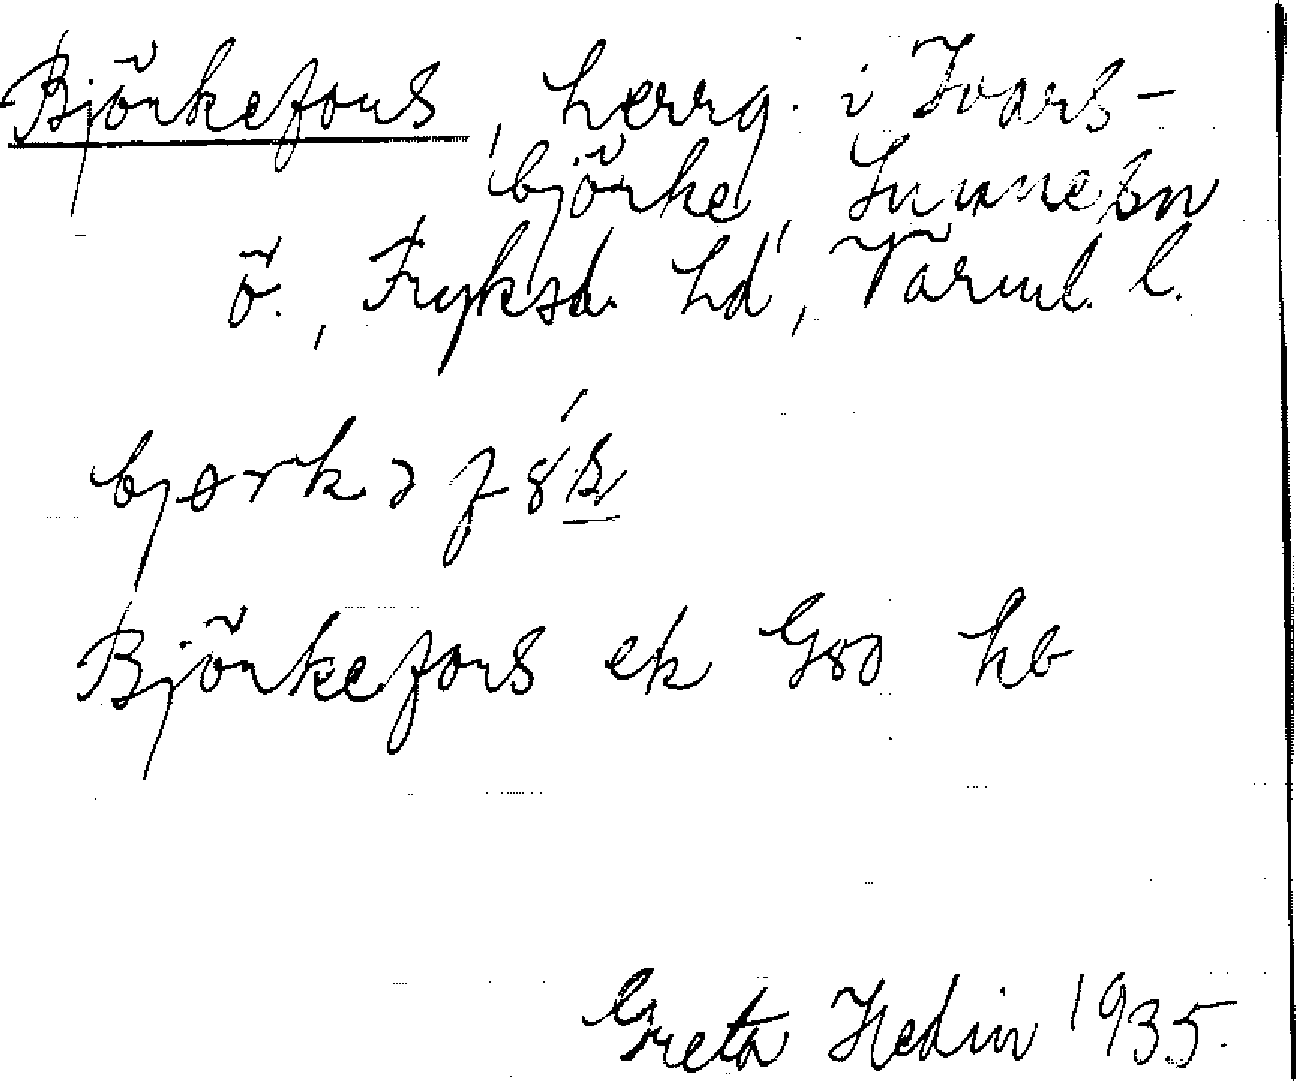 Björkefors, herrg. i Ivars-
björke, Sunne sn
ö., Fryksd. hd, Värml. l.
Björkefors ek Gsd hb
Greta Hedin 1935.